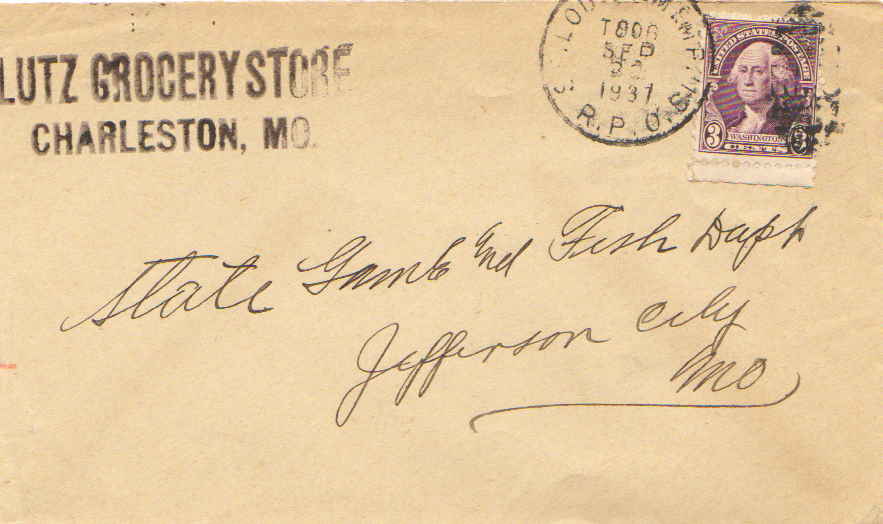 LUTZ GROCERY STORE
CHARLESTON, MO.
ST. LOUIS & MEMPHIS
SEP
1937
R.P.O.
UNITED STATES POSTAGE
3 WASHINGTON 3
CENTS
State Game and Fish Dept
Jefferson City
Mo